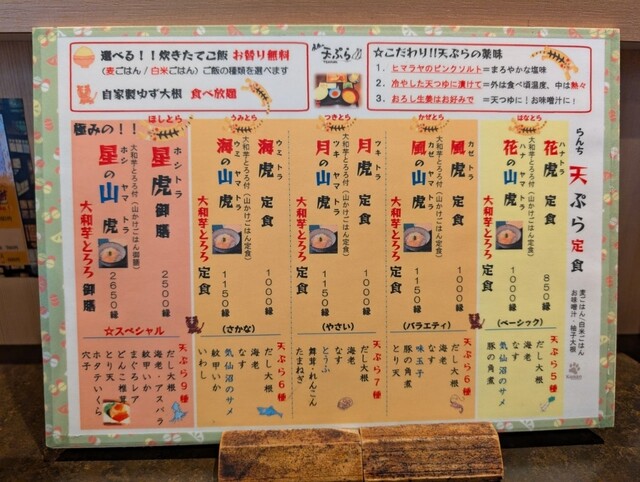 選べる！！炊きたてご飯 お替り無料
(麦ごはん / 白米ごはん) ご飯の種類を選べます
自家製ゆず大根 食べ放題
天ぷら
☆こだわり!!天ぷらの薬味
1. ヒマラヤのピンクソルト＝まろやかな塩味
2. 冷やした天つゆに漬けて＝外は食べ頃温度、中は熱々
3. おろし生姜はお好みで ＝天つゆに！お味噌汁に！
らんち 天ぷら定食
麦ごはん/白米ごはん
お味噌汁・柚子大根
はなとら
花虎 定食
ハナトラ
850縁
花の山虎
ハナ ヤマ トラ
大和芋とろろ付(山かけごはん定食)
大和芋とろろ 定食
1000縁
(ベーシック)
天ぷら5種
だし大根
海老
なす
気仙沼のサメ
豚の角煮
かぜとら
風虎 定食
カゼ トラ
1000縁
風の山虎
カゼ ヤマ トラ
大和芋とろろ付(山かけごはん定食)
大和芋とろろ 定食
1150縁
(バラエティ)
天ぷら6種
だし大根
海老
なす
味玉子
豚の角煮
とり天
つきとら
月虎 定食
ツキ トラ
1000縁
月の山虎
ツキ ヤマ トラ
大和芋とろろ付(山かけごはん定食)
大和芋とろろ 定食
1150縁
(やさい)
天ぷら7種
だし大根
海老
なす
とうふ
舞茸・れんこん
たまねぎ
うみとら
海虎 定食
ウミ トラ
1000縁
海の山虎
ウミ ヤマ トラ
大和芋とろろ付(山かけごはん定食)
大和芋とろろ 定食
1150縁
(さかな)
天ぷら6種
だし大根
海老
なす
気仙沼のサメ
紋甲いか
いわし
極みの！！
ほしとら
星虎 御膳
ホシトラ
2500縁
星の山虎
ホシ ヤマ トラ
大和芋とろろ付(山かけごはん御膳)
大和芋とろろ 御膳
2650縁
☆スペシャル
天ぷら9種
だし大根
海老・アスパラ
なす
紋甲いか
まぐろレア
どんこ椎茸
とり天
ホタテいくら
穴子